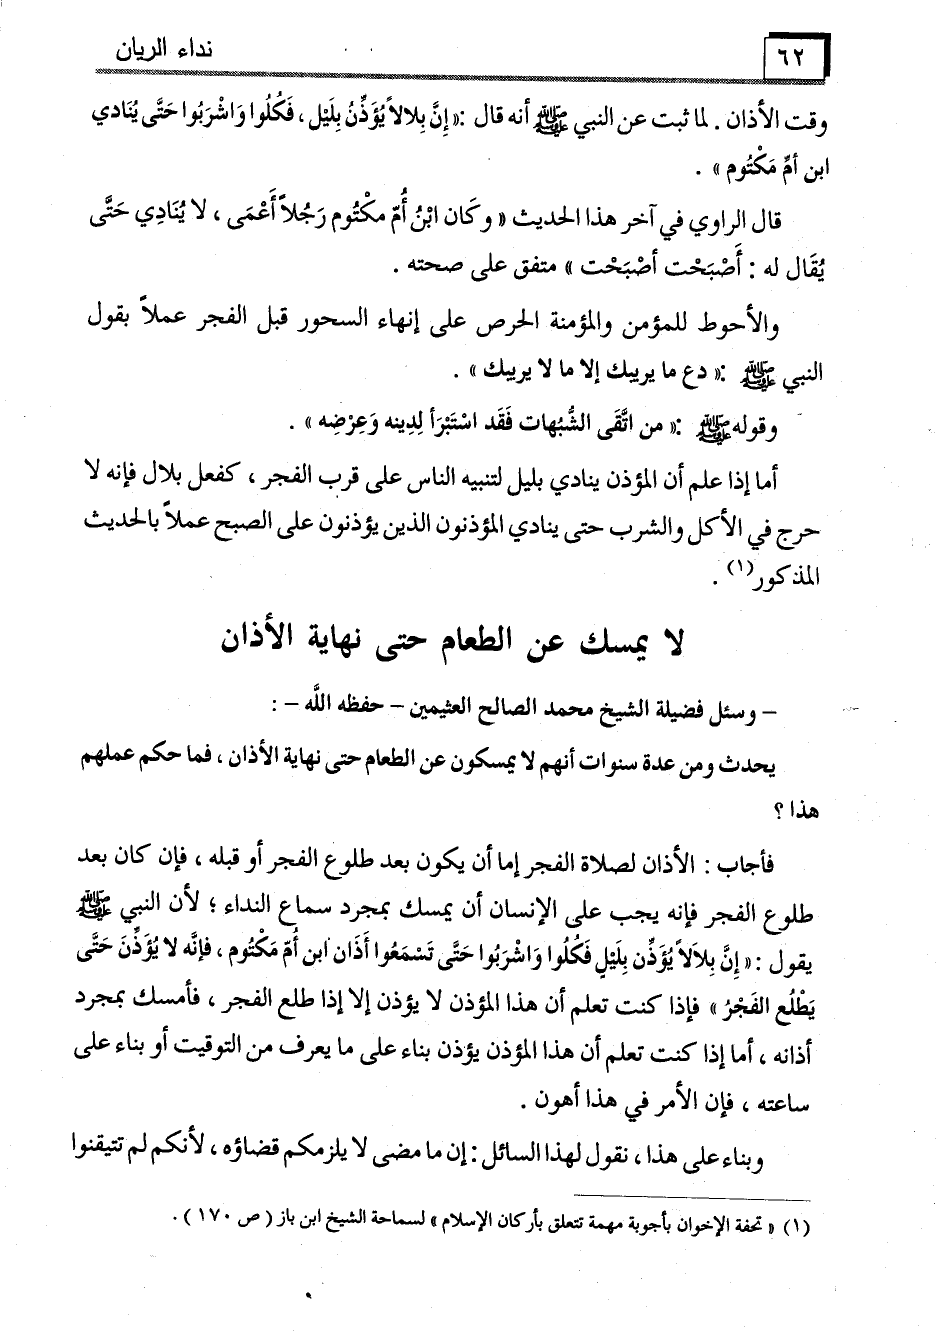 ٦٢
نداء الريان
وقت الأذان . لما ثبت عن النبي ﷺ أنه قال : « إِنَّ بِلالاً يُؤَذِّنُ بِلَيْل ، فَكُلُوا وَاشْرَبُوا حَتَّى يُنَادي
ابن أمِّ مَكْتُوم » .
قال الراوي في آخر هذا الحديث « وكَان ابْنُ أُمّ مكْتُوم رَجُلاً أَعْمَى ، لا يُنَادِي حَتَّى
يُقَال له : أَصْبَحْت أصْبَحْت » متفق على صحته .
والأحوط للمؤمن والمؤمنة الحرص على إنهاء السحور قبل الفجر عملاً بقول
النبي ﷺ : « دع ما يريبك إلا ما لا يريبك » .
وقوله ﷺ : « من اتَّقَى الشُّبُهات فَقَد اسْتَبْرَأ لِدِينه وَعِرْضِه » .
أما إذا علم أن المؤذن ينادي بليل لتنبيه الناس على قرب الفجر ، كفعل بلال فإنه لا
حرج في الأكل والشرب حتى ينادي المؤذنون الذين يؤذنون على الصبح عملاً بالحديث
المذكور(١) .
لا يمسك عن الطعام حتى نهاية الأذان
– وسئل فضيلة الشيخ محمد الصالح العثيمين – حفظه اللَّه – :
يحدث ومن عدة سنوات أنهم لا يمسكون عن الطعام حتى نهاية الأذان ، فما حكم عملهم
هذا ؟
فأجاب : الأذان لصلاة الفجر إما أن يكون بعد طلوع الفجر أو قبله ، فإن كان بعد
طلوع الفجر فإنه يجب على الإنسان أن يمسك بمجرد سماع النداء ؛ لأن النبي ﷺ
يقول : « إِنَّ بِلاَلاً يُؤَذِّن بِلَيْلٍ فَكُلُوا وَاشْرَبُوا حَتَّى تَسْمَعُوا أَذَان ابن أُمّ مَكْتُوم ، فَإنَّه لا يُؤَذِّنَ حَتَّى
يَطْلُع الفَجْرُ » فإذا كنت تعلم أن هذا المؤذن لا يؤذن إلا إذا طلع الفجر ، فأمسك بمجرد
أذانه ، أما إذا كنت تعلم أن هذا المؤذن يؤذن بناء على ما يعرف من التوقيت أو بناء على
ساعته ، فإن الأمر في هذا أهون .
وبناء على هذا ، نقول لهذا السائل : إن ما مضى لا يلزمكم قضاؤه ، لأنكم لم تتيقنوا
(١) « تحفة الإخوان بأجوبة مهمة تتعلق بأركان الإسلام » لسماحة الشيخ ابن باز ( ص ١٧٠ ) .